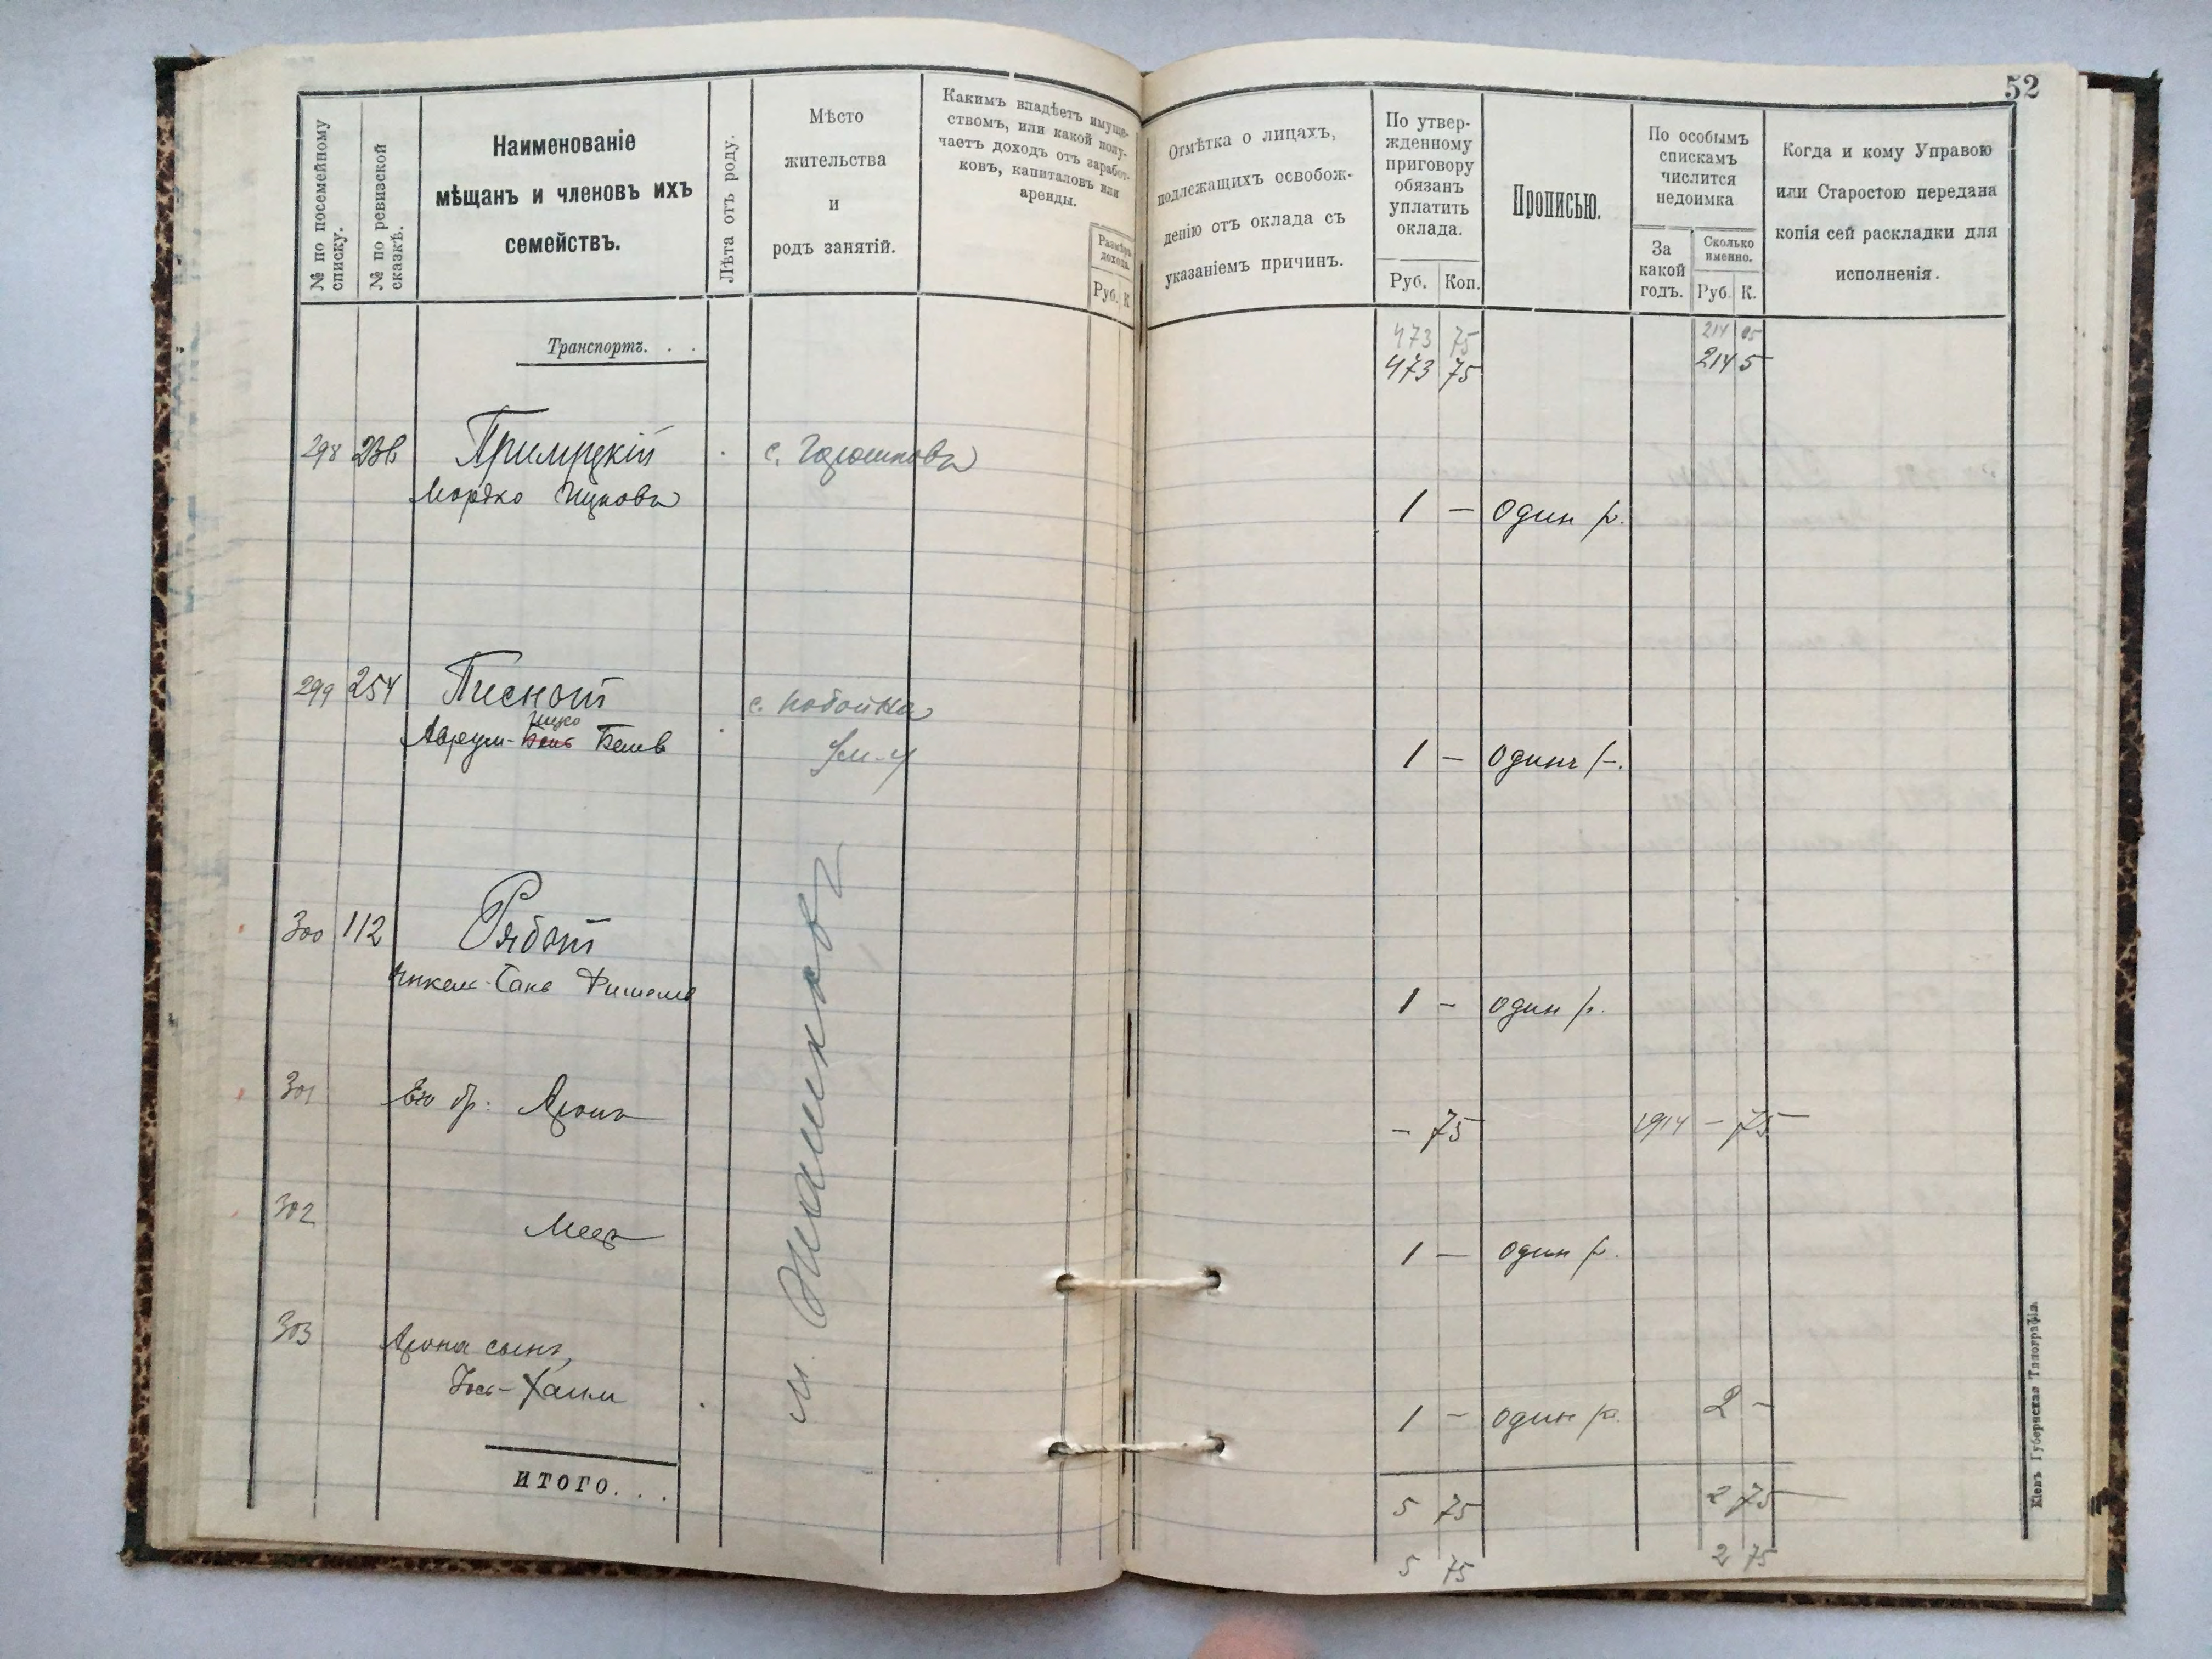 52
№ по посемейному
списку.
№ по ревизской
сказкѣ.
Наименованіе
мѣщанъ и членовъ ихъ
семействъ.
Лѣта отъ роду.
Мѣсто
жительства
и
родъ занятій.
Какимъ владѣетъ имуще-
ствомъ, или какой полу-
чаетъ доходъ отъ заработ-
ковъ, капиталовъ или
аренды.
Размѣръ
дохода.
Руб. К
Отмѣтка о лицахъ,
подлежащихъ освобож-
денію отъ оклада съ
указаніемъ причинъ.
По утвер-
жденному
приговору
обязанъ
уплатить
оклада.
Руб. Коп.
Прописью.
По особымъ
спискамъ
числится
недоимка
За
какой
годъ.
Сколько
именно.
Руб. К.
Когда и кому Управою
или Старостою передана
копія сей раскладки для
исполненія.
Транспортъ. . .
473 75 214 05
473 75 214 5
298
с.
Мордко Ицковъ
1 — один р.
299 254 Песнот
Ицко
Аврум- Беев
1 — одинъ р.
300 112 Рябой
Фишелев
1 — один р.
301 Его бр: Аронъ
— 75 1914 — 75
302 Меер
1 — один р.
303 Арона сынъ,
Іось-Хаим
1 — один р. 2 —
м.
ИТОГО. . .
5 75 2 75
5 75 2 75
Кіевъ Губернская Типографія.